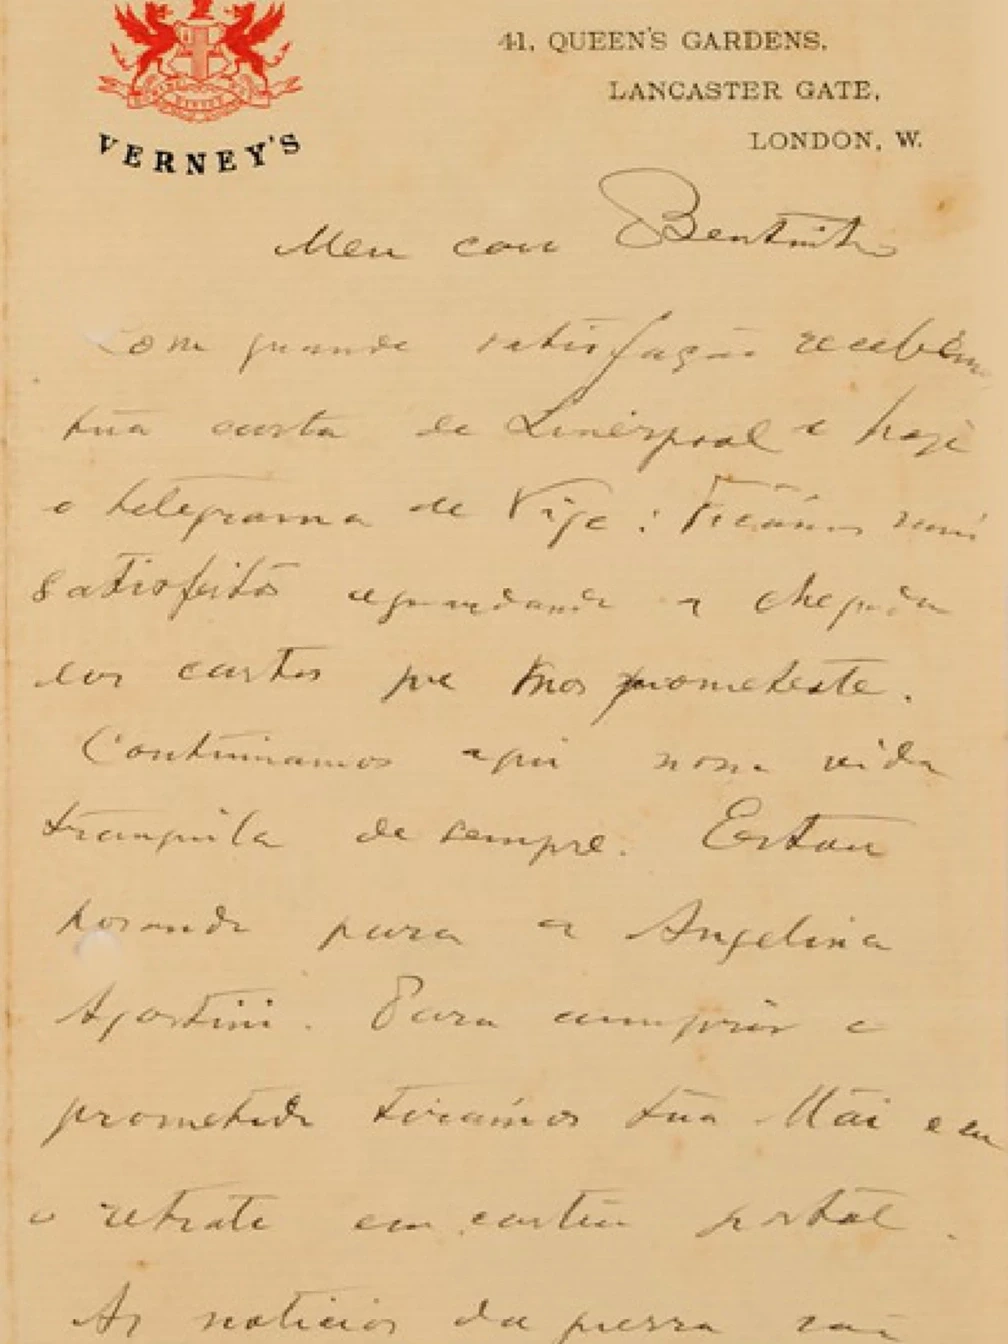 VERNEY'S
41, QUEEN'S GARDENS,
LANCASTER GATE,
LONDON, W.
Meu caro Bentinho
Com grande satisfação recebemos
tua carta de Liverpool e hoje
o telegrama de Vigo: Ficámos mui
satisfeitos aguardando a chegada
das cartas que nos prometeste.
Continuamos aqui nossa vida
tranquila de sempre. Estou
posando para a Angelina
Agostini. Para cumprir o
prometido tirámos tua Mãi e eu
o retrato em cartão postal.
As noticias da guerra são